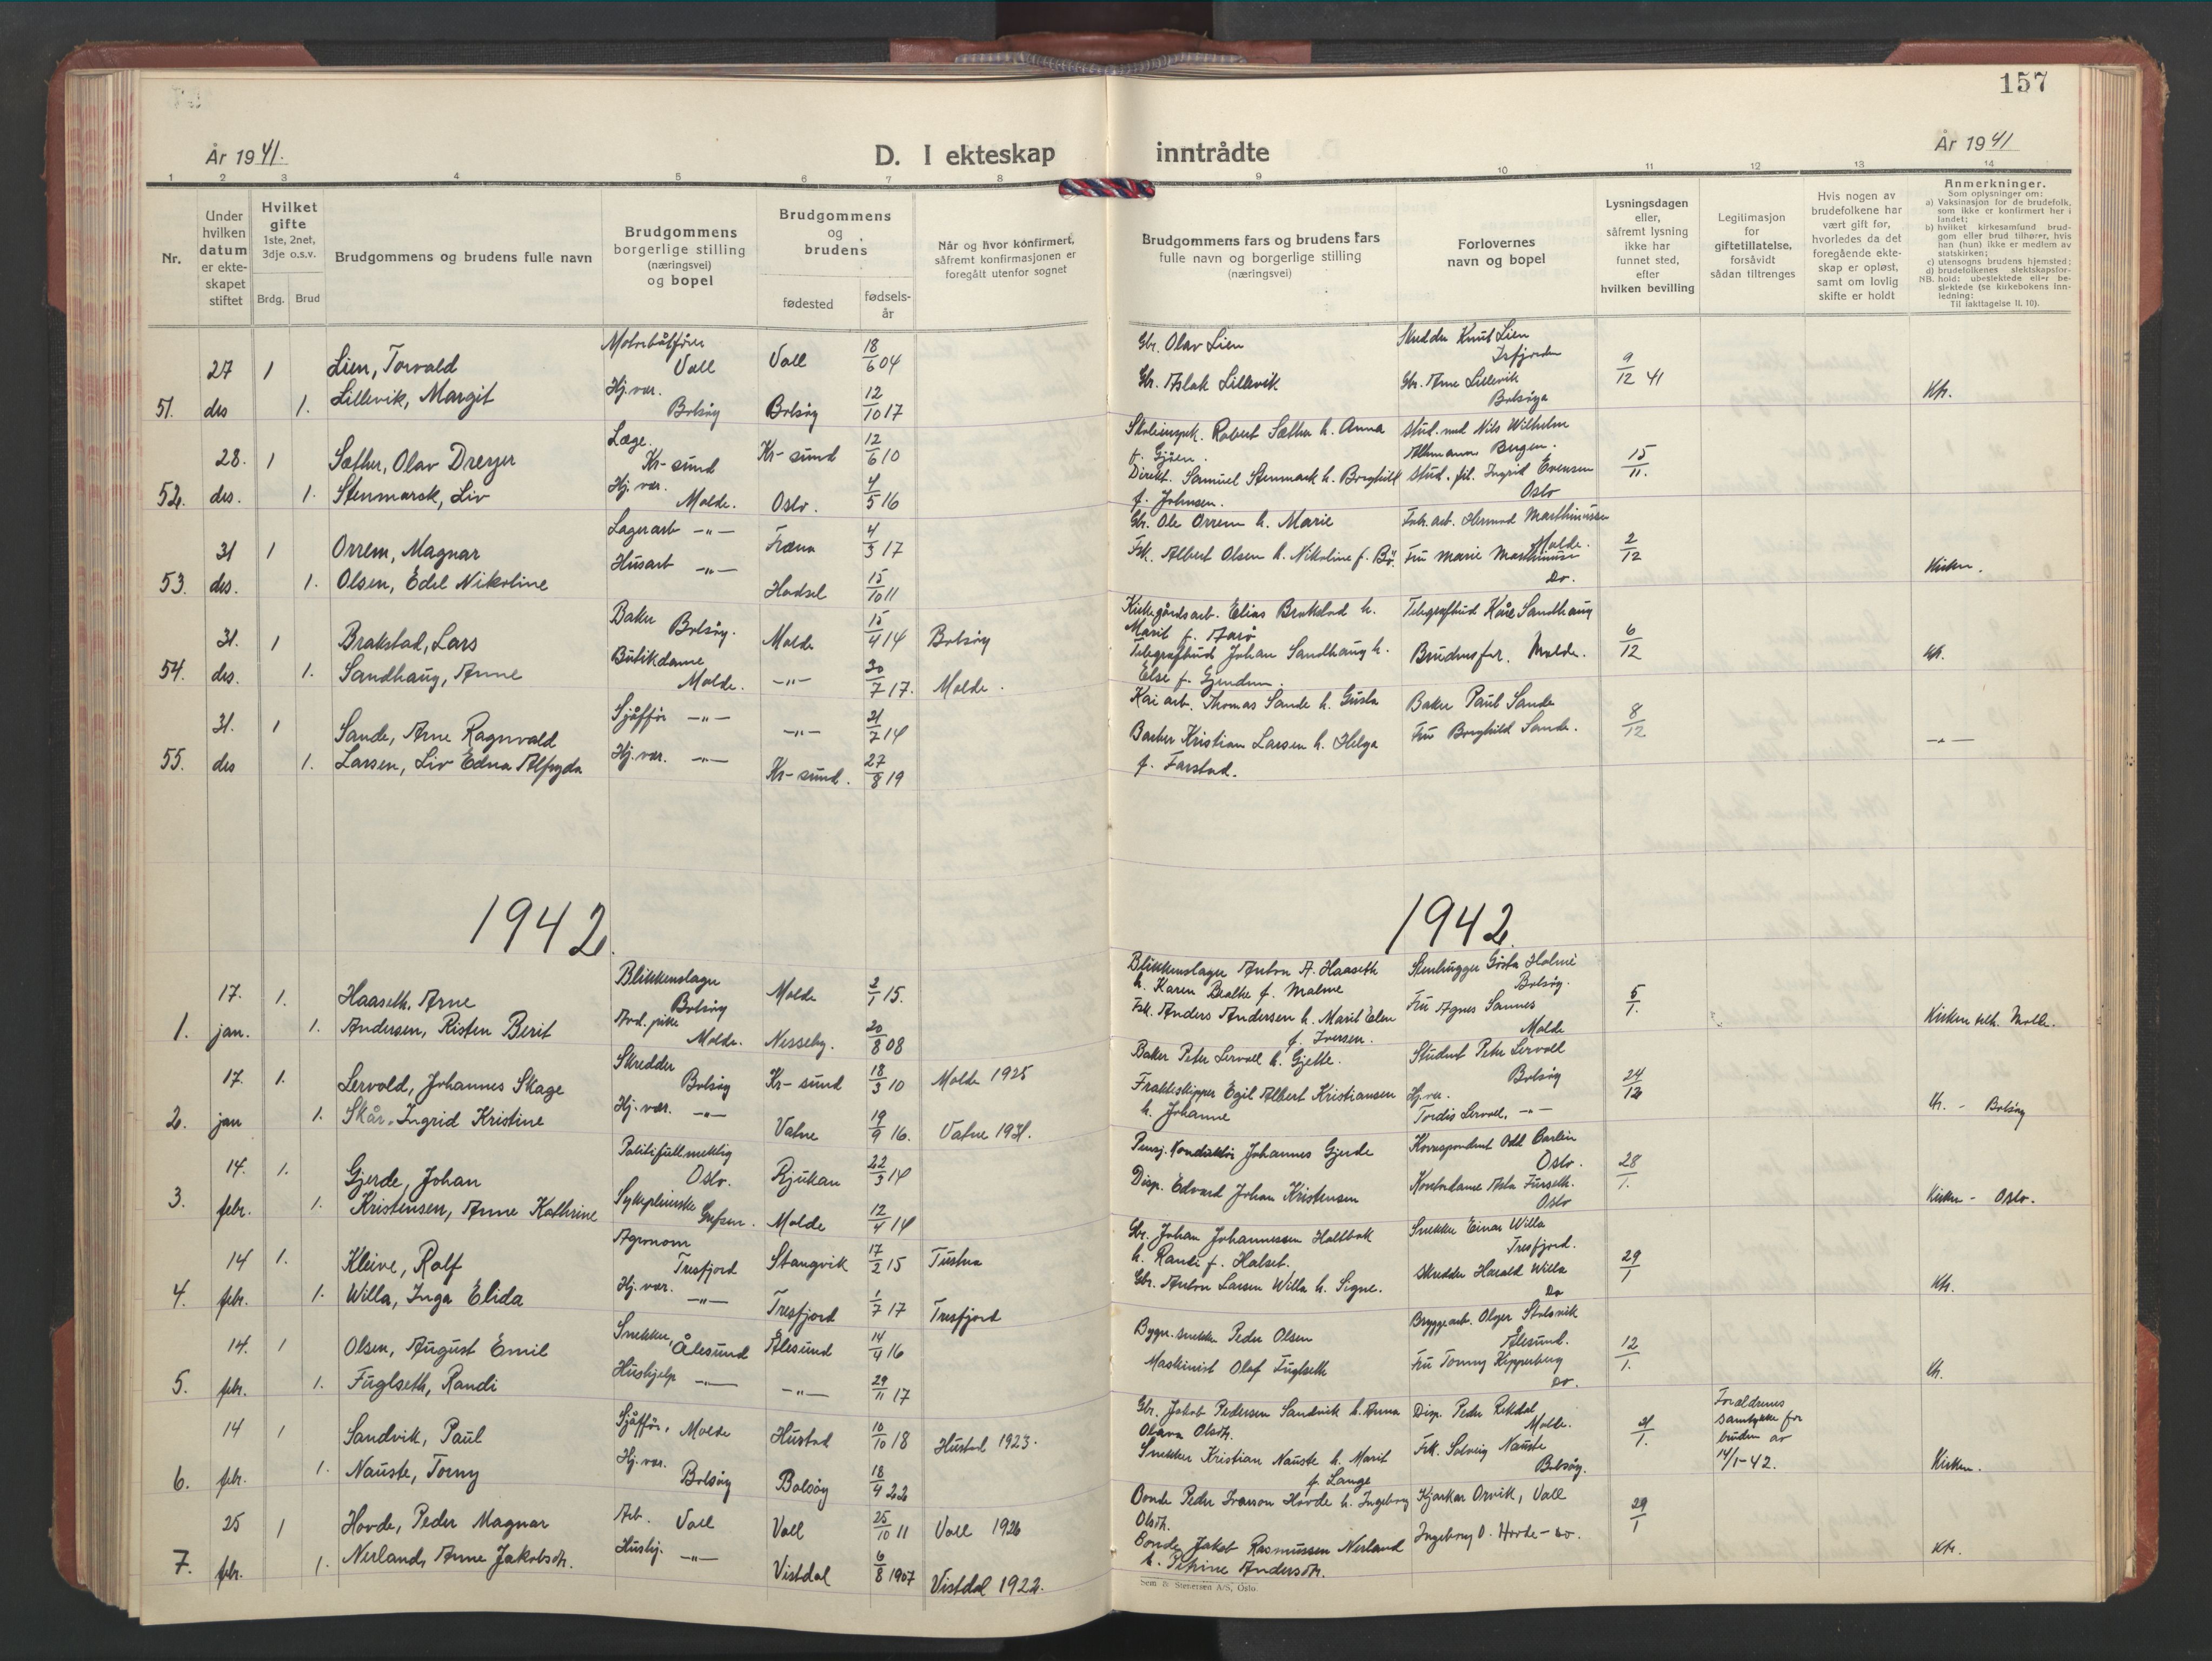 157
År 1941.
D. I ekteskap inntrådte
År 1941
1 2 3 4 5 6 7 8 9 10 11 12 13 14
Nr.
Under hvilken datum er ekteskapet stiftet
Hvilket gifte 1ste, 2net, 3dje o.s.v.
Brdg. Brud
Brudgommens og brudens fulle navn
Brudgommens borgerlige stilling (næringsvei) og bopel
Brudgommens og brudens
fødested
fødselsår
Når og hvor konfirmert, såfremt konfirmasjonen er foregått utenfor sognet
Brudgommens fars og brudens fars fulle navn og borgerlige stilling (næringsvei)
Forlovernes navn og bopel
Lysningsdagen eller, såfremt lysning ikke har funnet sted, efter hvilken bevilling
Legitimasjon for giftetillatelse, forsåvidt sådan tiltrenges
Hvis nogen av brudefolkene har vært gift før, hvorledes da det foregående ekteskap er opløst, samt om lovlig skifte er holdt
Anmerkninger.
Som oplysninger om:
a) Vaksinasjon for de brudefolk, som ikke er konfirmert her i landet;
b) hvilket kirkesamfund brudgom eller brud tilhører, hvis han (hun) ikke er medlem av statskirken;
c) utensogns brudens hjemsted;
d) brudefolkenes slektskapsforhold: ubeslektede eller beslektede (se kirkebokens innledning:
NB.
Til iakttagelse II. 10).
27 1 Lien, Torvald Motorbåtfører Voll Voll 18/6 04 Gbr. Olav Lien Skredder Knut Lien Isfjorden 9/12 41
51. des 1. Lillevik, Margit Hj.vær. Bolsøy Bolsøy 12/10 17 Gbr. Aslak Lillevik Gbr. Arne Lillevik Bolsøya Kh.
28. 1 Sæther, Olav Dreyer Læge. Kr-sund Kr-sund 12/6 10 Skoleinspek. Robert Sæther h. Anna f. Gjöen. stud. med Nils Wilhelm Bergen. 15/11.
52. des. 1. Stenmarsk, Liv Hj. vær. Molde. Oslo. 4/5 16 Direkt. Samuel Stenmark h. Borghild f. Johnsen. stud. fil. Ingrid Evensen Oslo
31 1 Orrem, Magnar Lagerarb -"- Fræna 4/3 17 Gbr. Ole Orrem h. Marie Fabr.arb. Hermod Marthinussen Molde. 2/12
53. des. 1. Olsen, Edel Nikoline Husarb -"- Hadsel 15/10 11 Fsk. Albert Olsen h. Nikoline f. Bö. Fru Marie Marthinussen Do. Kirken.
31. 1 Brakstad, Lars Baker Bolsøy. Molde 15/4 14 Bolsöy Kirkegårdsarb. Elias Brakstad h. Marit f. Aarö Telegrafbud Kåre Sandhaug 6/12
54. des. 1. Sandhaug, Anne Butikdame Molde. -"- 30/7 17. Molde. Telegrafbud Johan Sandhaug h. Else f. Gjendem. Brudens far. Molde. Kh.
31. 1 Sande, Arne Ragnvald Sjåffør -"- -"- 21/7 14 Kai arb. Thomas Sande h. Gusta Baker Paul Sande 8/12
55. des 1. Larsen, Liv Edna Alfryda Hj. vær. -"- Kr-sund. 27/8 19 Barber Kristian Larsen h. Helga f. Farstad. Fru Borghild Sande. -"-
1942. 1942.
17. 1. Haaseth, Arne Blikkenslager Bolsøy Molde 2/1 15. Blikkenslager Anton A. Haaseth h. Karen Beathe f. Malme Stenhugger Gösta Holme Bolsøy. 5/1.
1. jan. 1. Andersen, Risten Berit Avd. pike Molde. Nesseby. 20/8 08 Fsk. Anders Andersen h. Marit Elen f. Iversen. Fru Agnes Sannes Molde Kirken Molde.
17. 1. Lervold, Johannes Skage Skredder Bolsøy Kr-sund 18/3 10 Molde 1925 Baker Peter Lervoll h. Gjette. Student Peter Lervoll Bolsøy 24/12
2. jan 1. Skår, Ingrid Kristine Hj. vær. -"- Vatne 19/9 16. Vatne 1931. Fraktskipper Egil Albert Kristiansen h. Johanne Hj.vær. Tordis Lervoll, -"- Kh. - Bolsøy
14. 1. Gjerde, Johan Politifullmektig Oslo. Rjukan 22/3 14 Pensj. Konduktör Johannes Gjerde Korrespondent Odd Oslo. 28/1.
3. febr. 1. Kristensen, Anne Kathrine Sykepleierske Grefsen. Molde 12/4 14 Disp. Edvard Johan Kristensen Kontordame Asta Furseth. Oslo Kirken - Oslo.
14 1. Kleive, Rolf Agronom Tresfjord Stangvik 17/2 15 Tustna Gbr. Johan Johannessen Holtbak h. Randi f. Halset. Snekker Einar Willa Tresfjord. 29/1
4. febr. 1. Willa, Inga Elida Hj. vær. -"- Tresfjord 1/7 17 Tresfjord Gbr. Anton Larsen Willa h. Signe. Skredder Harald Willa Do Kh.
14. 1 Olsen, August Emil Snekker, Ålesund Ålesund 14/4 16 Bygn.snekker Peder Olsen Bryggearb. Olger Stolsvik Ålesund. 12/1.
5. febr. 1. Fuglseth, Randi Hushjelp -"- -"- 29/11 17 Maskinist Olaf Fuglseth Fru Tonny Kipperberg Do. Kh.
14 1 Sandvik, Paul Sjåffør, Molde Hustad 10/10 18 Hustad 1923. Gbr. Jakob Pedersen Sandvik h. Anna Olava Olsdtr. Disp. Peder Rekdal Molde. 21/1. Forældrenes samtykke for bruden av 14/1-42.
6. febr. 1. Nauste, Torny Hj. vær. Bolsøy Bolsöy 18/4 22 Snekker Kristian Nauste h. Marit f. Lange Frk. Solveig Nauste Bolsøy. Kirken.
25 1 Hovde, Peder Magnar Arb. Voll Voll 25/10 11 Voll 1926 Bonde Peder Ivarson Hovde h. Ingeborg Olsdtr. Hjarkar Orvik, Voll 29/1
7. febr. 1. Nerland, Arne Jakobsdtr. Hushj. -"- Vistdal 6/8 1907 Vistdal 1922. Bonde Jakob Rasmussen Nerland h. Petrine Andersdtr. Ingeborg O. Hovde - do. Kh.
Sem & Stenersen A/S, Oslo